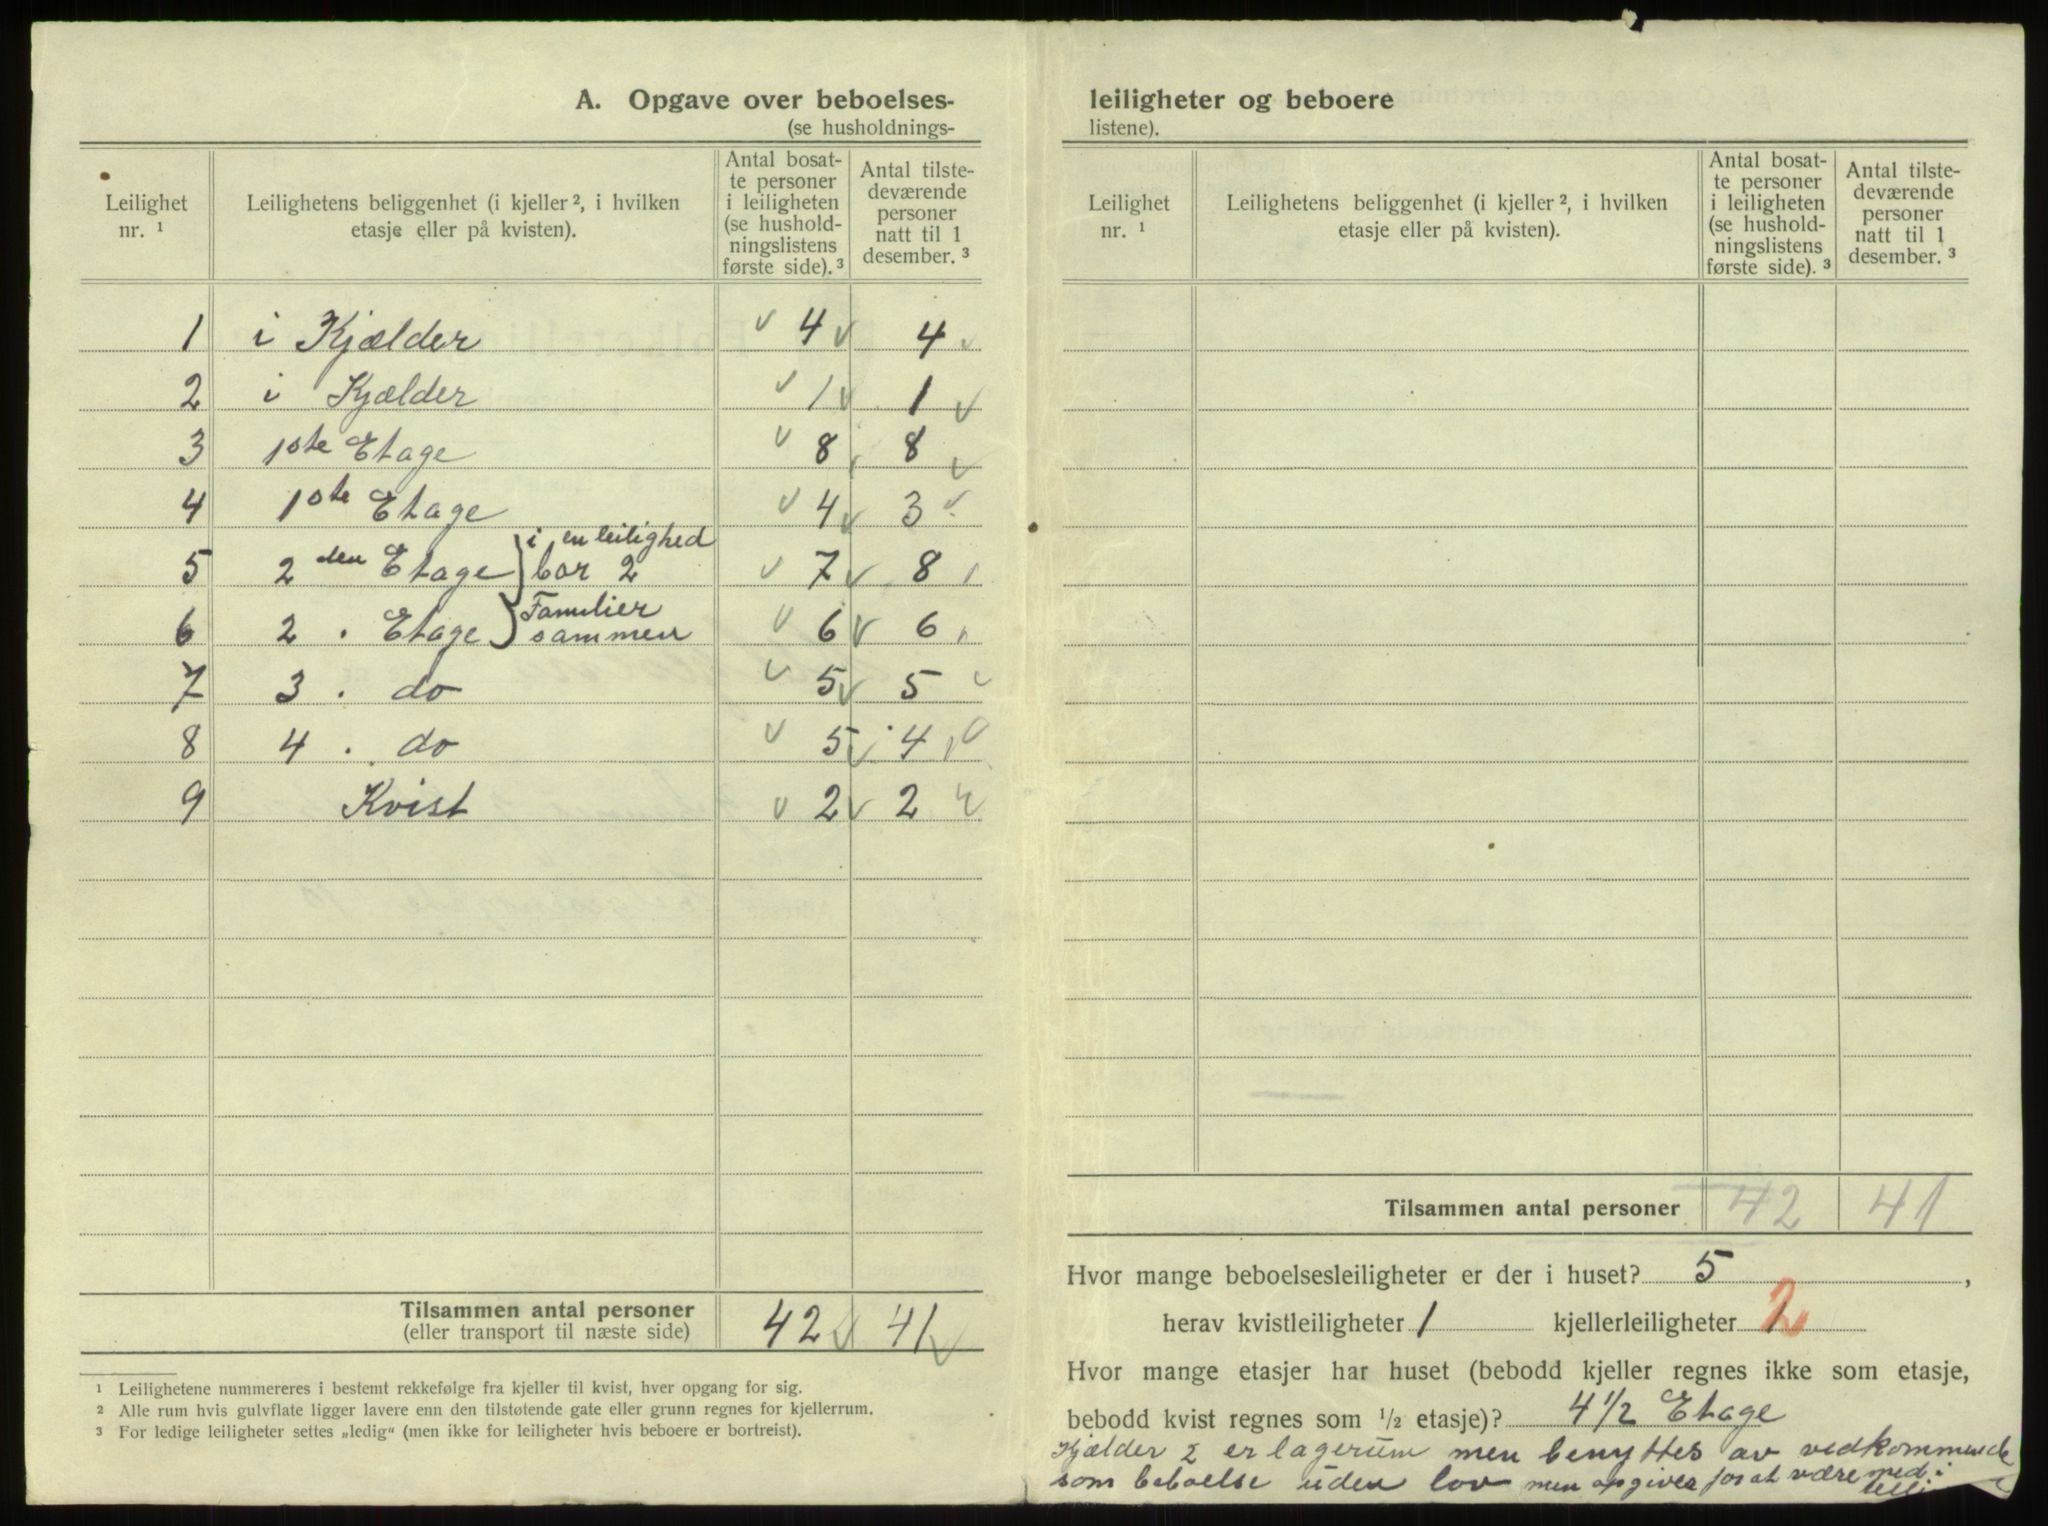 A. Opgave over beboelses-
(se husholdnings-
Leilighet nr. 1
Leilighetens beliggenhet (i kjeller 2, i hvilken etasje eller på kvisten).
Antal bosat-te personer i leiligheten (se hushold-ningslistens første side). 3
Antal tilste-deværende personer natt til 1 desember. 3
1 i Kjælder 4 4
2 i Kjælder 1 1
3 1ste Etage 8 8
4 1ste Etage 4 3
i en leilighed
5 2den Etage bor 2 7 8
Familier
6 2 . Etage sammen 6 6
7 3 . do 5 5
8 4 . do 5 4
9 Kvist 2 2
Tilsammen antal personer 42 41
(eller transport til næste side)
1 Leilighetene nummereres i bestemt rekkefølge fra kjeller til kvist, hver opgang for sig.
2 Alle rum hvis gulvflate ligger lavere enn den tilstøtende gate eller grunn regnes for kjellerrum.
3 For ledige leiligheter settes „ledig“ (men ikke for leiligheter hvis beboere er bortreist).
leiligheter og beboere
listene).
Leilighet nr. 1
Leilighetens beliggenhet (i kjeller 2, i hvilken etasje eller på kvisten).
Antal bosat-te personer i leiligheten (se hushold-ningslistens første side). 3
Antal tilste-deværende personer natt til 1 desember. 3
Tilsammen antal personer 42 41
Hvor mange beboelsesleiligheter er der i huset? 5 ,
herav kvistleiligheter 1 kjellerleiligheter 1 2
Hvor mange etasjer har huset (bebodd kjeller regnes ikke som etasje,
bebodd kvist regnes som 1/2 etasje)? 4 1/2 Etage
Kjælder 2 er lagerum men benyttes av vedkommende
som beboelse uden lov men opgives for at være med i